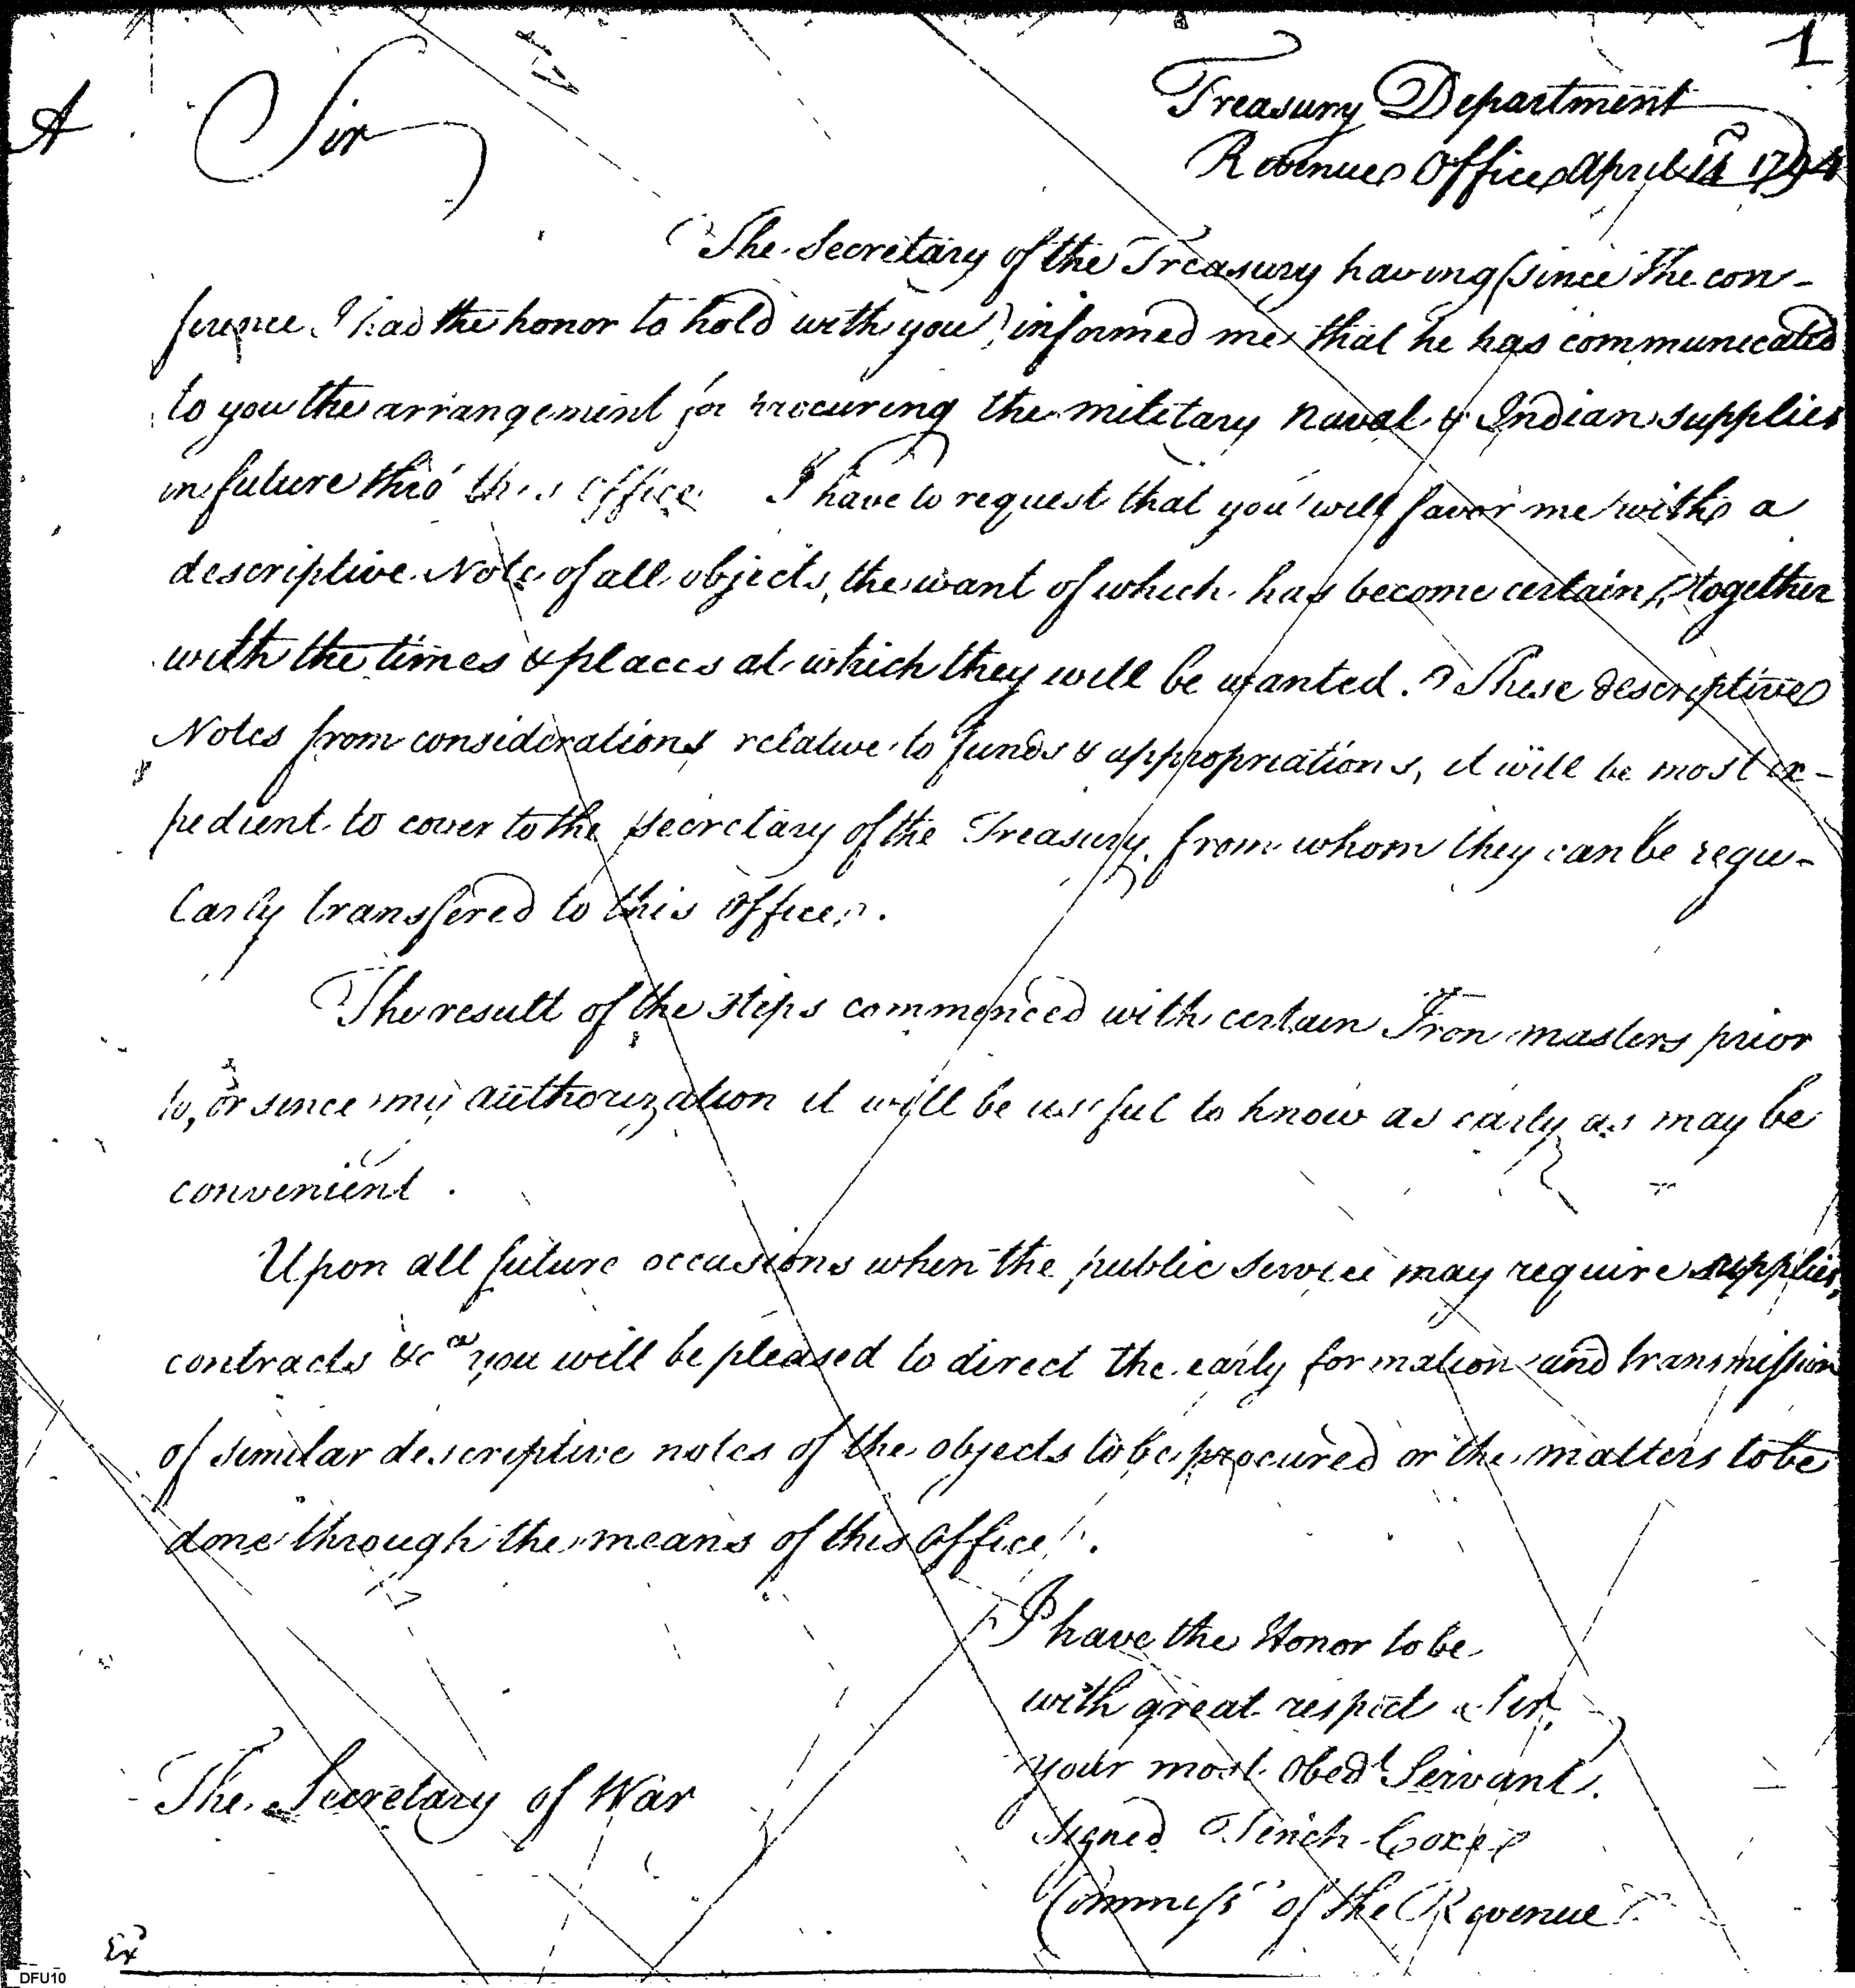 1
A Sir Treasury Department
Revenue Office April 14 1794
The Secretary of the Treasury having (since the con-
ference I had the honor to hold with you) informed me that he has communicated
to you the arrangement for procuring the military naval & Indian supplies
in future thro' this office I have to request that you will favor me with a
descriptive Note of all objects, the want of which has become certain, together
with the times & places at which they will be wanted. These descriptive
Notes from considerations relative to funds & appropriations, it will be most ex-
pedient to cover to the Secretary of the Treasury, from whom they can be regu-
larly transfered to this office.
The result of the steps commenced with certain Iron masters prior
to, or since my authorization it will be useful to know as early as may be
convenient.
Upon all future occasions when the public service may require supplies,
contracts &ca you will be pleased to direct the early formation and transmission
of similar descriptive notes of the objects to be procured or the matters to be
done through the means of this office.
I have the Honor to be
with great respect Sir,
your most Obedt Servant.
The Secretary of War
signed Tench Coxe
Commissr of the Revenue
Exd
DFU10